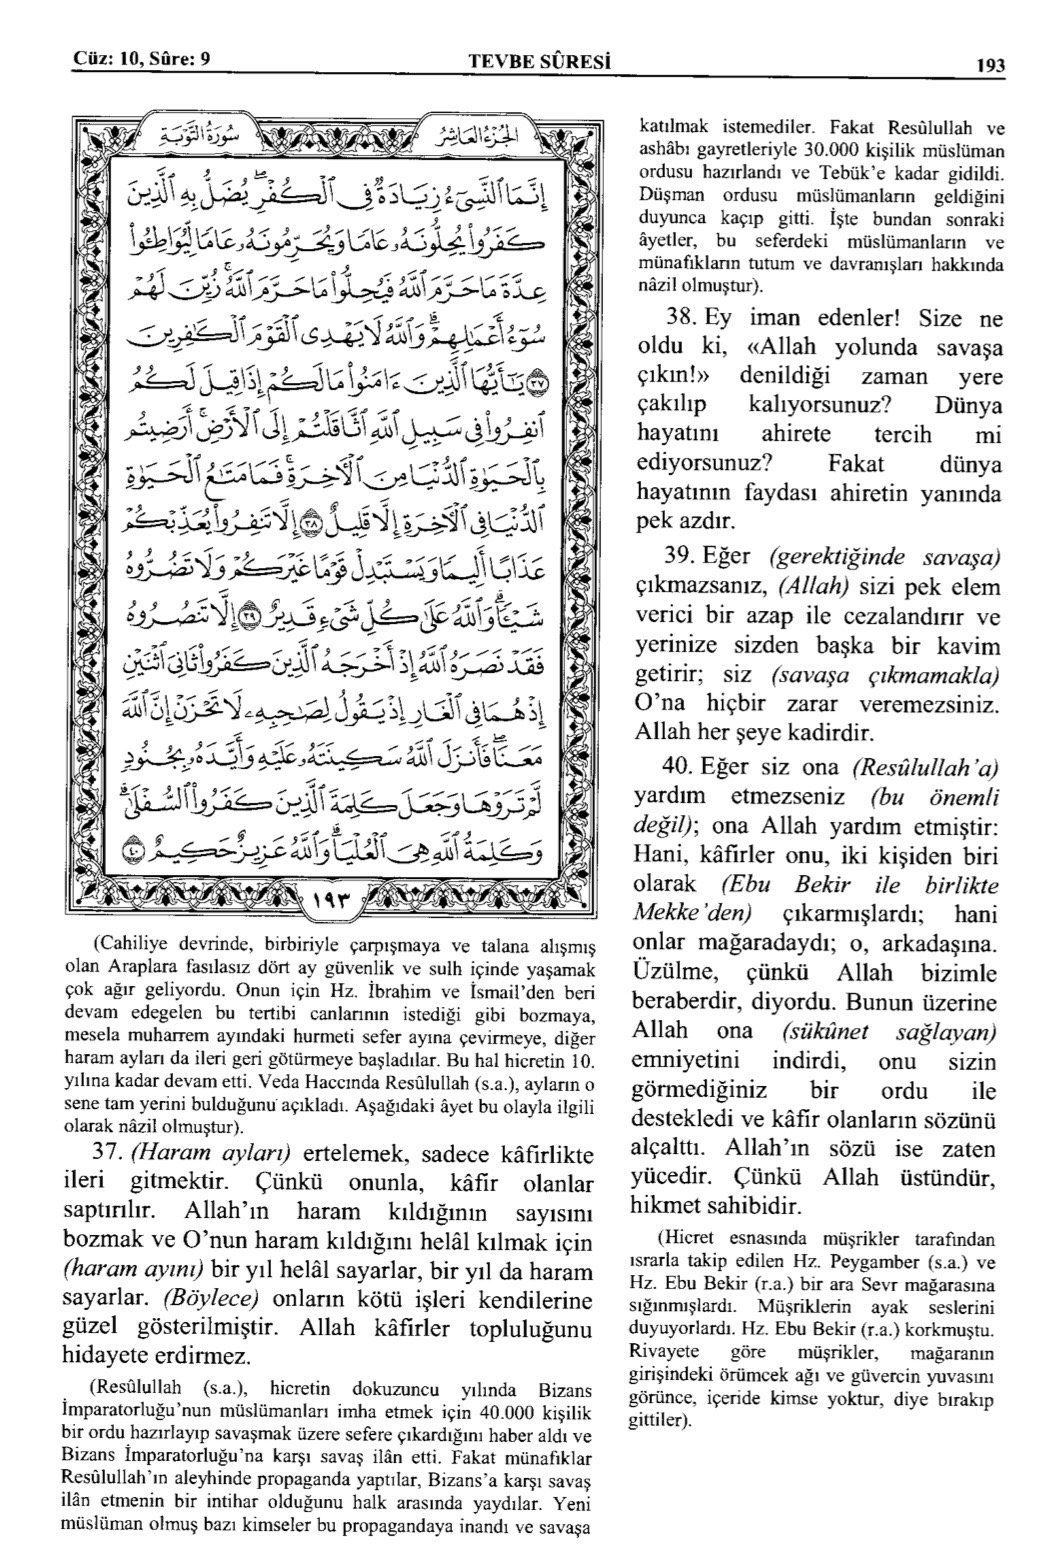 Cüz: 10, Sûre: 9
TEVBE SÛRESİ
193
سُورَةُ التَّوْبَةِ
الجُزْءُ العَاشِرُ
إِنَّمَا النَّسِيءُ زِيَادَةٌ فِي الْكُفْرِ ۖ يُضَلُّ بِهِ الَّذِينَ
كَفَرُوا يُحِلُّونَهُ عَامًا وَيُحَرِّمُونَهُ عَامًا لِيُوَاطِئُوا
عِدَّةَ مَا حَرَّمَ اللَّهُ فَيُحِلُّوا مَا حَرَّمَ اللَّهُ ۚ زُيِّنَ لَهُمْ
سُوءُ أَعْمَالِهِمْ ۗ وَاللَّهُ لَا يَهْدِي الْقَوْمَ الْكَافِرِينَ
٣٧ يَا أَيُّهَا الَّذِينَ ءَامَنُوا مَا لَكُمْ إِذَا قِيلَ لَكُمُ
انْفِرُوا فِي سَبِيلِ اللَّهِ اثَّاقَلْتُمْ إِلَى الْأَرْضِ ۚ أَرَضِيتُمْ
بِالْحَيَوٰةِ الدُّنْيَا مِنَ الْآخِرَةِ ۚ فَمَا مَتَاعُ الْحَيَوٰةِ
الدُّنْيَا فِي الْآخِرَةِ إِلَّا قَلِيلٌ ٣٨ إِلَّا تَنْفِرُوا يُعَذِّبْكُمْ
عَذَابًا أَلِيمًا وَيَسْتَبْدِلْ قَوْمًا غَيْرَكُمْ وَلَا تَضُرُّوهُ
شَيْئًا ۗ وَاللَّهُ عَلَىٰ كُلِّ شَيْءٍ قَدِيرٌ ٣٩ إِلَّا تَنْصُرُوهُ
فَقَدْ نَصَرَهُ اللَّهُ إِذْ أَخْرَجَهُ الَّذِينَ كَفَرُوا ثَانِيَ اثْنَيْنِ
إِذْ هُمَا فِي الْغَارِ إِذْ يَقُولُ لِصَاحِبِهِ لَا تَحْزَنْ إِنَّ اللَّهَ
مَعَنَا ۖ فَأَنْزَلَ اللَّهُ سَكِينَتَهُ عَلَيْهِ وَأَيَّدَهُ بِجُنُودٍ
لَمْ تَرَوْهَا وَجَعَلَ كَلِمَةَ الَّذِينَ كَفَرُوا السُّفْلَىٰ ۗ
وَكَلِمَةُ اللَّهِ هِيَ الْعُلْيَا ۗ وَاللَّهُ عَزِيزٌ حَكِيمٌ ٤٠
١٩٣
(Cahiliye devrinde, birbiriyle çarpışmaya ve talana alışmış
olan Araplara fasılasız dört ay güvenlik ve sulh içinde yaşamak
çok ağır geliyordu. Onun için Hz. İbrahim ve İsmail'den beri
devam edegelen bu tertibi canlarının istediği gibi bozmaya,
mesela muharrem ayındaki hurmeti sefer ayına çevirmeye, diğer
haram ayları da ileri geri götürmeye başladılar. Bu hal hicretin 10.
yılına kadar devam etti. Veda Haccında Resûlullah (s.a.), ayların o
sene tam yerini bulduğunu açıkladı. Aşağıdaki âyet bu olayla ilgili
olarak nâzil olmuştur).
37. (Haram ayları) ertelemek, sadece kâfirlikte
ileri gitmektir. Çünkü onunla, kâfir olanlar
saptırılır. Allah'ın haram kıldığının sayısını
bozmak ve O'nun haram kıldığını helâl kılmak için
(haram ayını) bir yıl helâl sayarlar, bir yıl da haram
sayarlar. (Böylece) onların kötü işleri kendilerine
güzel gösterilmiştir. Allah kâfirler topluluğunu
hidayete erdirmez.
(Resûlullah (s.a.), hicretin dokuzuncu yılında Bizans
İmparatorluğu'nun müslümanları imha etmek için 40.000 kişilik
bir ordu hazırlayıp savaşmak üzere sefere çıkardığını haber aldı ve
Bizans İmparatorluğu'na karşı savaş ilân etti. Fakat münafıklar
Resûlullah'ın aleyhinde propaganda yaptılar, Bizans'a karşı savaş
ilân etmenin bir intihar olduğunu halk arasında yaydılar. Yeni
müslüman olmuş bazı kimseler bu propagandaya inandı ve savaşa
katılmak istemediler. Fakat Resûlullah ve
ashâbı gayretleriyle 30.000 kişilik müslüman
ordusu hazırlandı ve Tebük'e kadar gidildi.
Düşman ordusu müslümanların geldiğini
duyunca kaçıp gitti. İşte bundan sonraki
âyetler, bu seferdeki müslümanların ve
münafıkların tutum ve davranışları hakkında
nâzil olmuştur).
38. Ey iman edenler! Size ne
oldu ki, «Allah yolunda savaşa
çıkın!» denildiği zaman yere
çakılıp kalıyorsunuz? Dünya
hayatını ahirete tercih mi
ediyorsunuz? Fakat dünya
hayatının faydası ahiretin yanında
pek azdır.
39. Eğer (gerektiğinde savaşa)
çıkmazsanız, (Allah) sizi pek elem
verici bir azap ile cezalandırır ve
yerinize sizden başka bir kavim
getirir; siz (savaşa çıkmamakla)
O'na hiçbir zarar veremezsiniz.
Allah her şeye kadirdir.
40. Eğer siz ona (Resûlullah'a)
yardım etmezseniz (bu önemli
değil); ona Allah yardım etmiştir:
Hani, kâfirler onu, iki kişiden biri
olarak (Ebu Bekir ile birlikte
Mekke'den) çıkarmışlardı; hani
onlar mağaradaydı; o, arkadaşına.
Üzülme, çünkü Allah bizimle
beraberdir, diyordu. Bunun üzerine
Allah ona (sükûnet sağlayan)
emniyetini indirdi, onu sizin
görmediğiniz bir ordu ile
destekledi ve kâfir olanların sözünü
alçalttı. Allah'ın sözü ise zaten
yücedir. Çünkü Allah üstündür,
hikmet sahibidir.
(Hicret esnasında müşrikler tarafından
ısrarla takip edilen Hz. Peygamber (s.a.) ve
Hz. Ebu Bekir (r.a.) bir ara Sevr mağarasına
sığınmışlardı. Müşriklerin ayak seslerini
duyuyorlardı. Hz. Ebu Bekir (r.a.) korkmuştu.
Rivayete göre müşrikler, mağaranın
girişindeki örümcek ağı ve güvercin yuvasını
görünce, içeride kimse yoktur, diye bırakıp
gittiler).